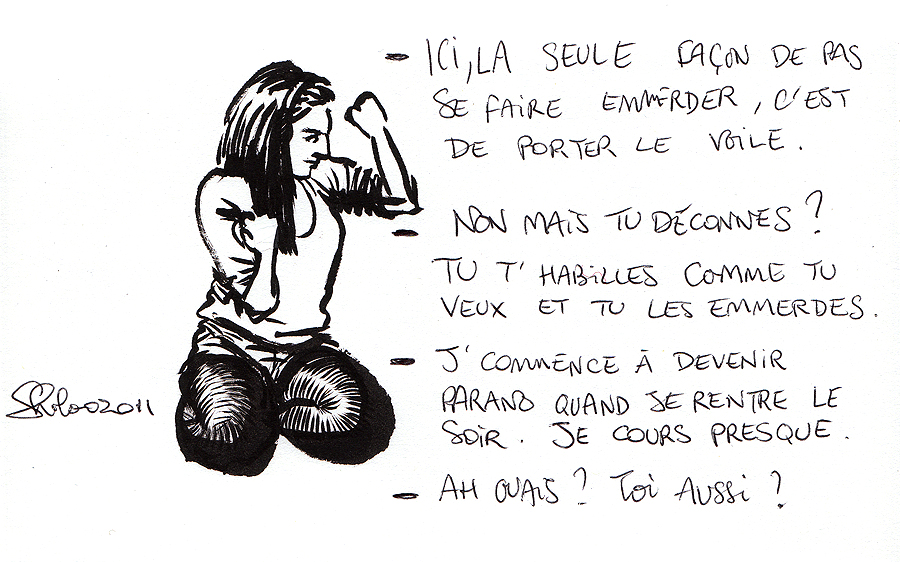 - ICI, LA SEULE FAÇON DE PAS
SE FAIRE EMMERDER, C'EST
DE PORTER LE VOILE.
- NON MAIS TU DÉCONNES ?
TU T'HABILLES COMME TU
VEUX ET TU LES EMMERDES.
- J'COMMENCE À DEVENIR
PARANO QUAND JE RENTRE LE
SOIR. JE COURS PRESQUE.
- AH OUAIS ? TOI AUSSI ?
2011